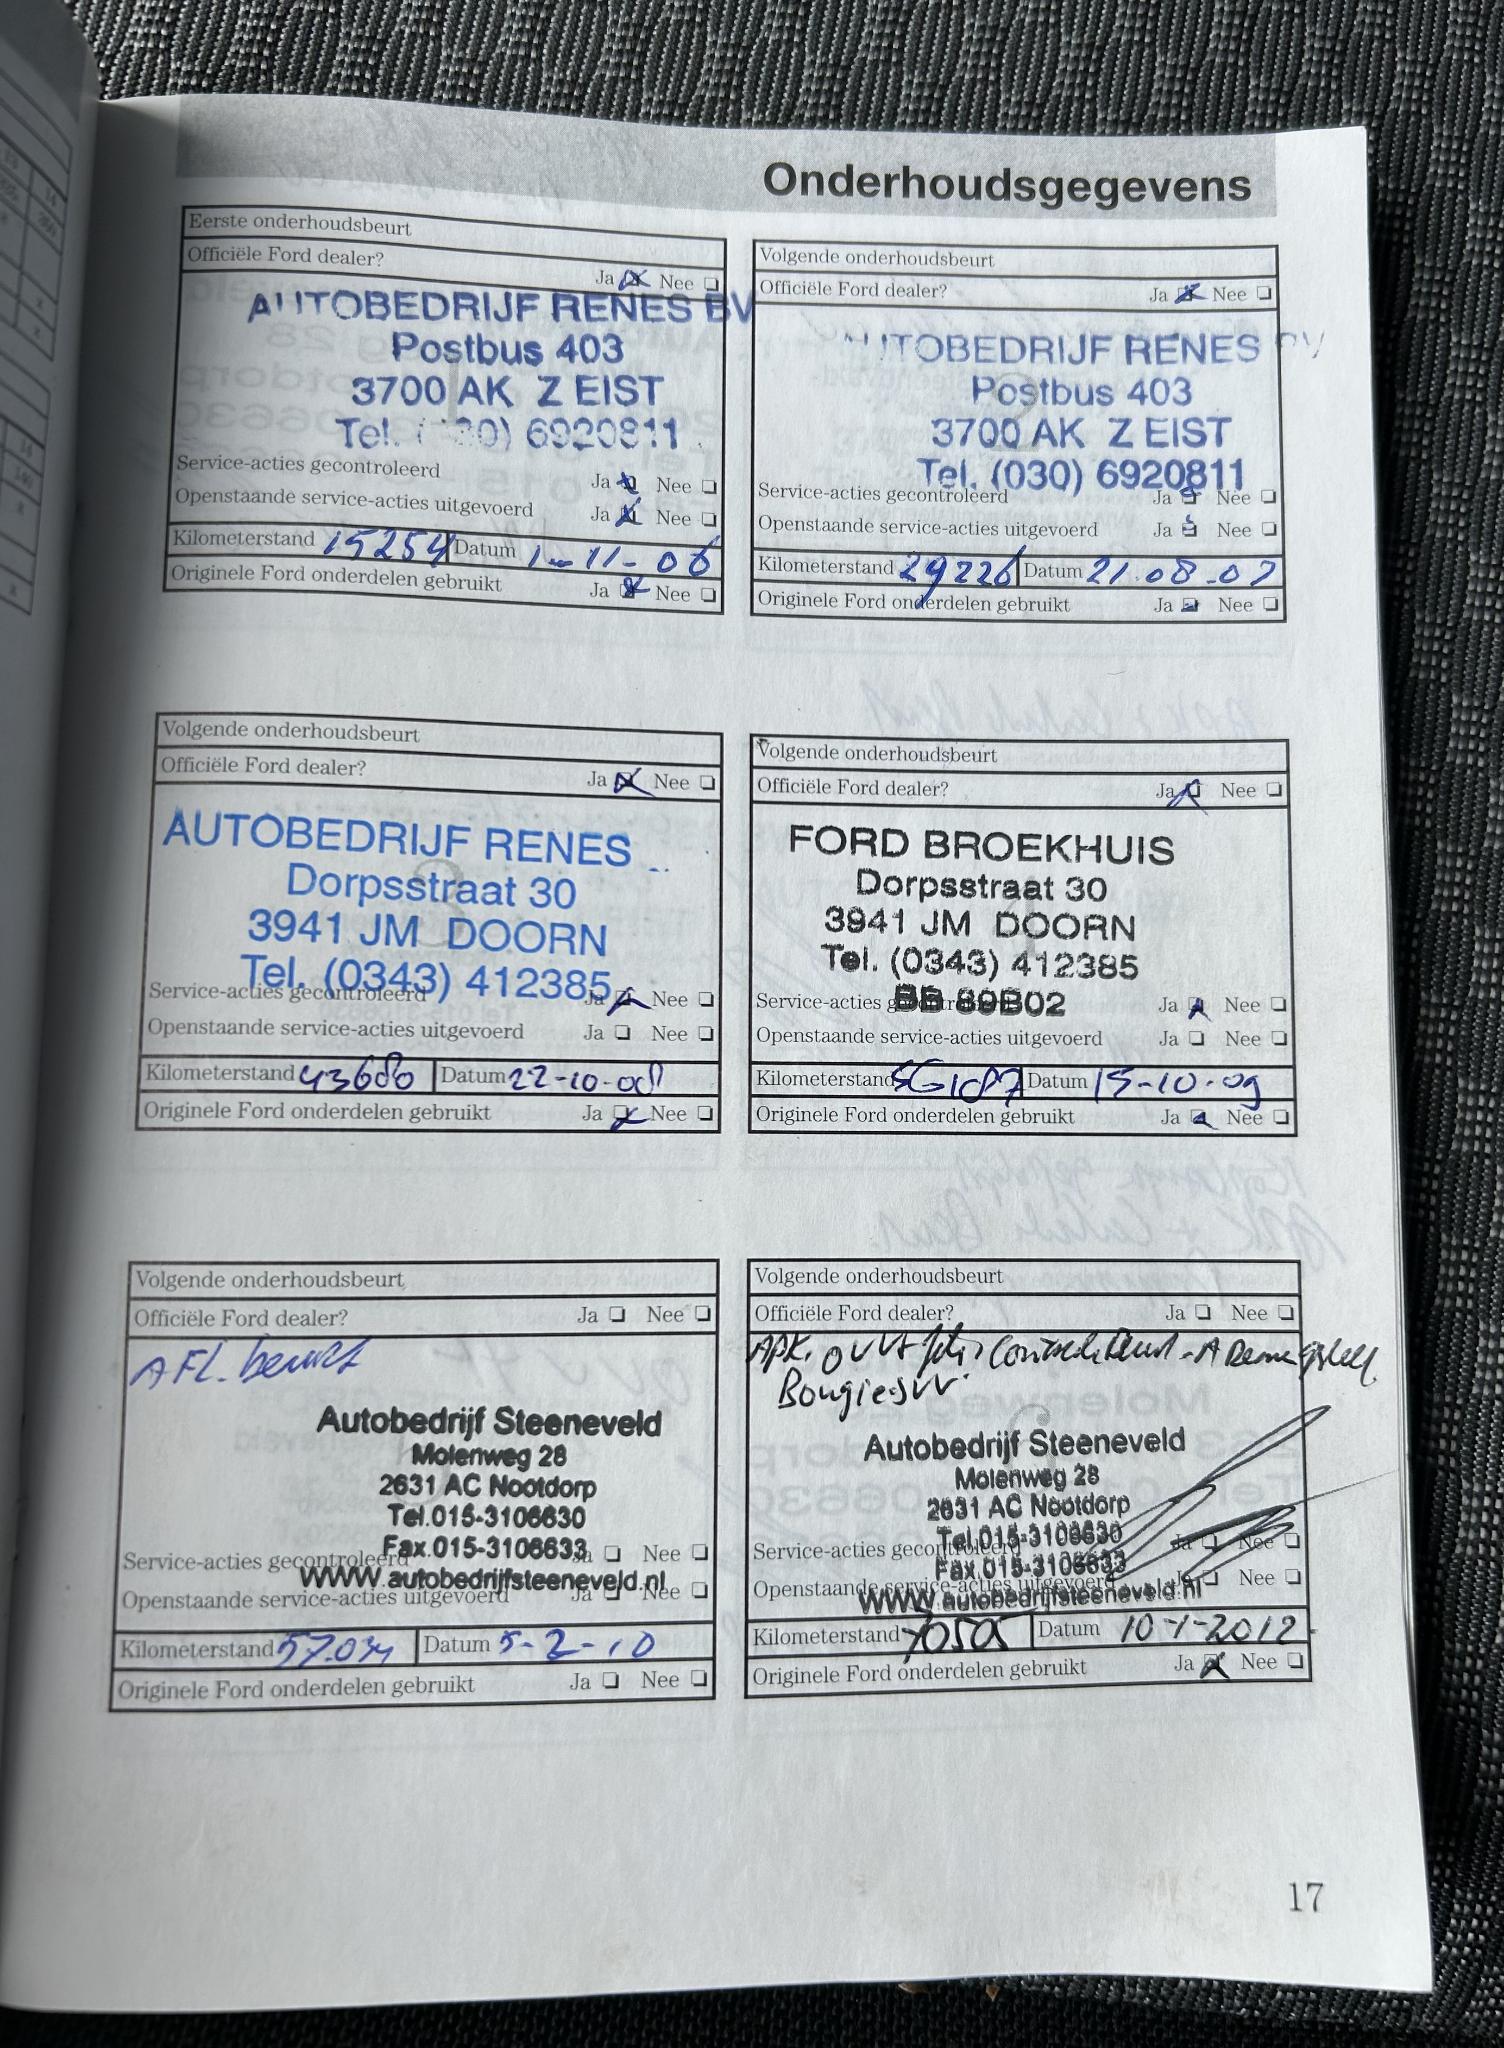 Onderhoudsgegevens
Eerste onderhoudsbeurt
Officiële Ford dealer?
Ja Nee
AUTOBEDRIJF RENES BV
Postbus 403
3700 AK Z EIST
Tel. (030) 6920811
Service-acties gecontroleerd
Ja Nee
Openstaande service-acties uitgevoerd
Ja Nee
Kilometerstand 15254 Datum 1-11-06
Originele Ford onderdelen gebruikt
Ja Nee
Volgende onderhoudsbeurt
Officiële Ford dealer?
Ja Nee
AUTOBEDRIJF RENES BV
Postbus 403
3700 AK Z EIST
Tel. (030) 6920811
Service-acties gecontroleerd
Ja Nee
Openstaande service-acties uitgevoerd
Ja Nee
Kilometerstand 29226 Datum 21.08-07
Originele Ford onderdelen gebruikt
Ja Nee
Volgende onderhoudsbeurt
Officiële Ford dealer?
Ja Nee
AUTOBEDRIJF RENES
Dorpsstraat 30
3941 JM DOORN
Tel. (0343) 412385
Service-acties gecontroleerd
Ja Nee
Openstaande service-acties uitgevoerd
Ja Nee
Kilometerstand 43680 Datum 22-10-08
Originele Ford onderdelen gebruikt
Ja Nee
Volgende onderhoudsbeurt
Officiële Ford dealer?
Ja Nee
FORD BROEKHUIS
Dorpsstraat 30
3941 JM DOORN
Tel. (0343) 412385
BB 89B02
Service-acties gecontroleerd
Ja Nee
Openstaande service-acties uitgevoerd
Ja Nee
Kilometerstand Datum 15-10-09
Originele Ford onderdelen gebruikt
Ja Nee
Volgende onderhoudsbeurt
Officiële Ford dealer?
Ja Nee
AFL. beurt
Autobedrijf Steeneveld
Molenweg 28
2631 AC Nootdorp
Tel.015-3106630
Fax.015-3106633
Service-acties gecontroleerd
Ja Nee
WWW.autobedrijfsteeneveld.nl
Openstaande service-acties uitgevoerd
Ja Nee
Kilometerstand 57.034 Datum 5-2-10
Originele Ford onderdelen gebruikt
Ja Nee
Volgende onderhoudsbeurt
Officiële Ford dealer?
Ja Nee
APK.
Bougies vv.
Autobedrijf Steeneveld
Molenweg 28
2631 AC Nootdorp
Tel.015-3106630
Service-acties gecontroleerd
Ja Nee
Fax.015-3106633
Openstaande service-acties uitgevoerd
Ja Nee
WWW.autobedrijfsteeneveld.nl
Kilometerstand Datum 10-1-2012
Originele Ford onderdelen gebruikt
Ja Nee
17